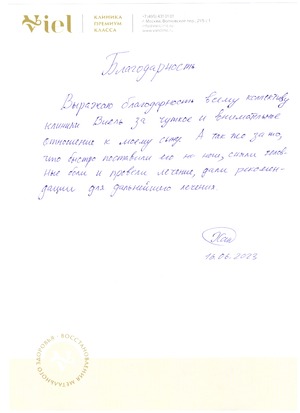 Viel
КЛИНИКА
ПРЕМИУМ
КЛАССА
Благодарность
Выражаю благодарность всему коллективу
клиники Виель за чуткое и внимательное
отношение к моему сыну. А так же за то,
что быстро поставили его на ноги, сняли головные
боли и провели лечение, дали рекомен-
дации для дальнейшего лечения.
16.06.2023
ВОССТАНОВЛЕНИЯ МЕНТАЛЬНОГО ЗДОРОВЬЯ